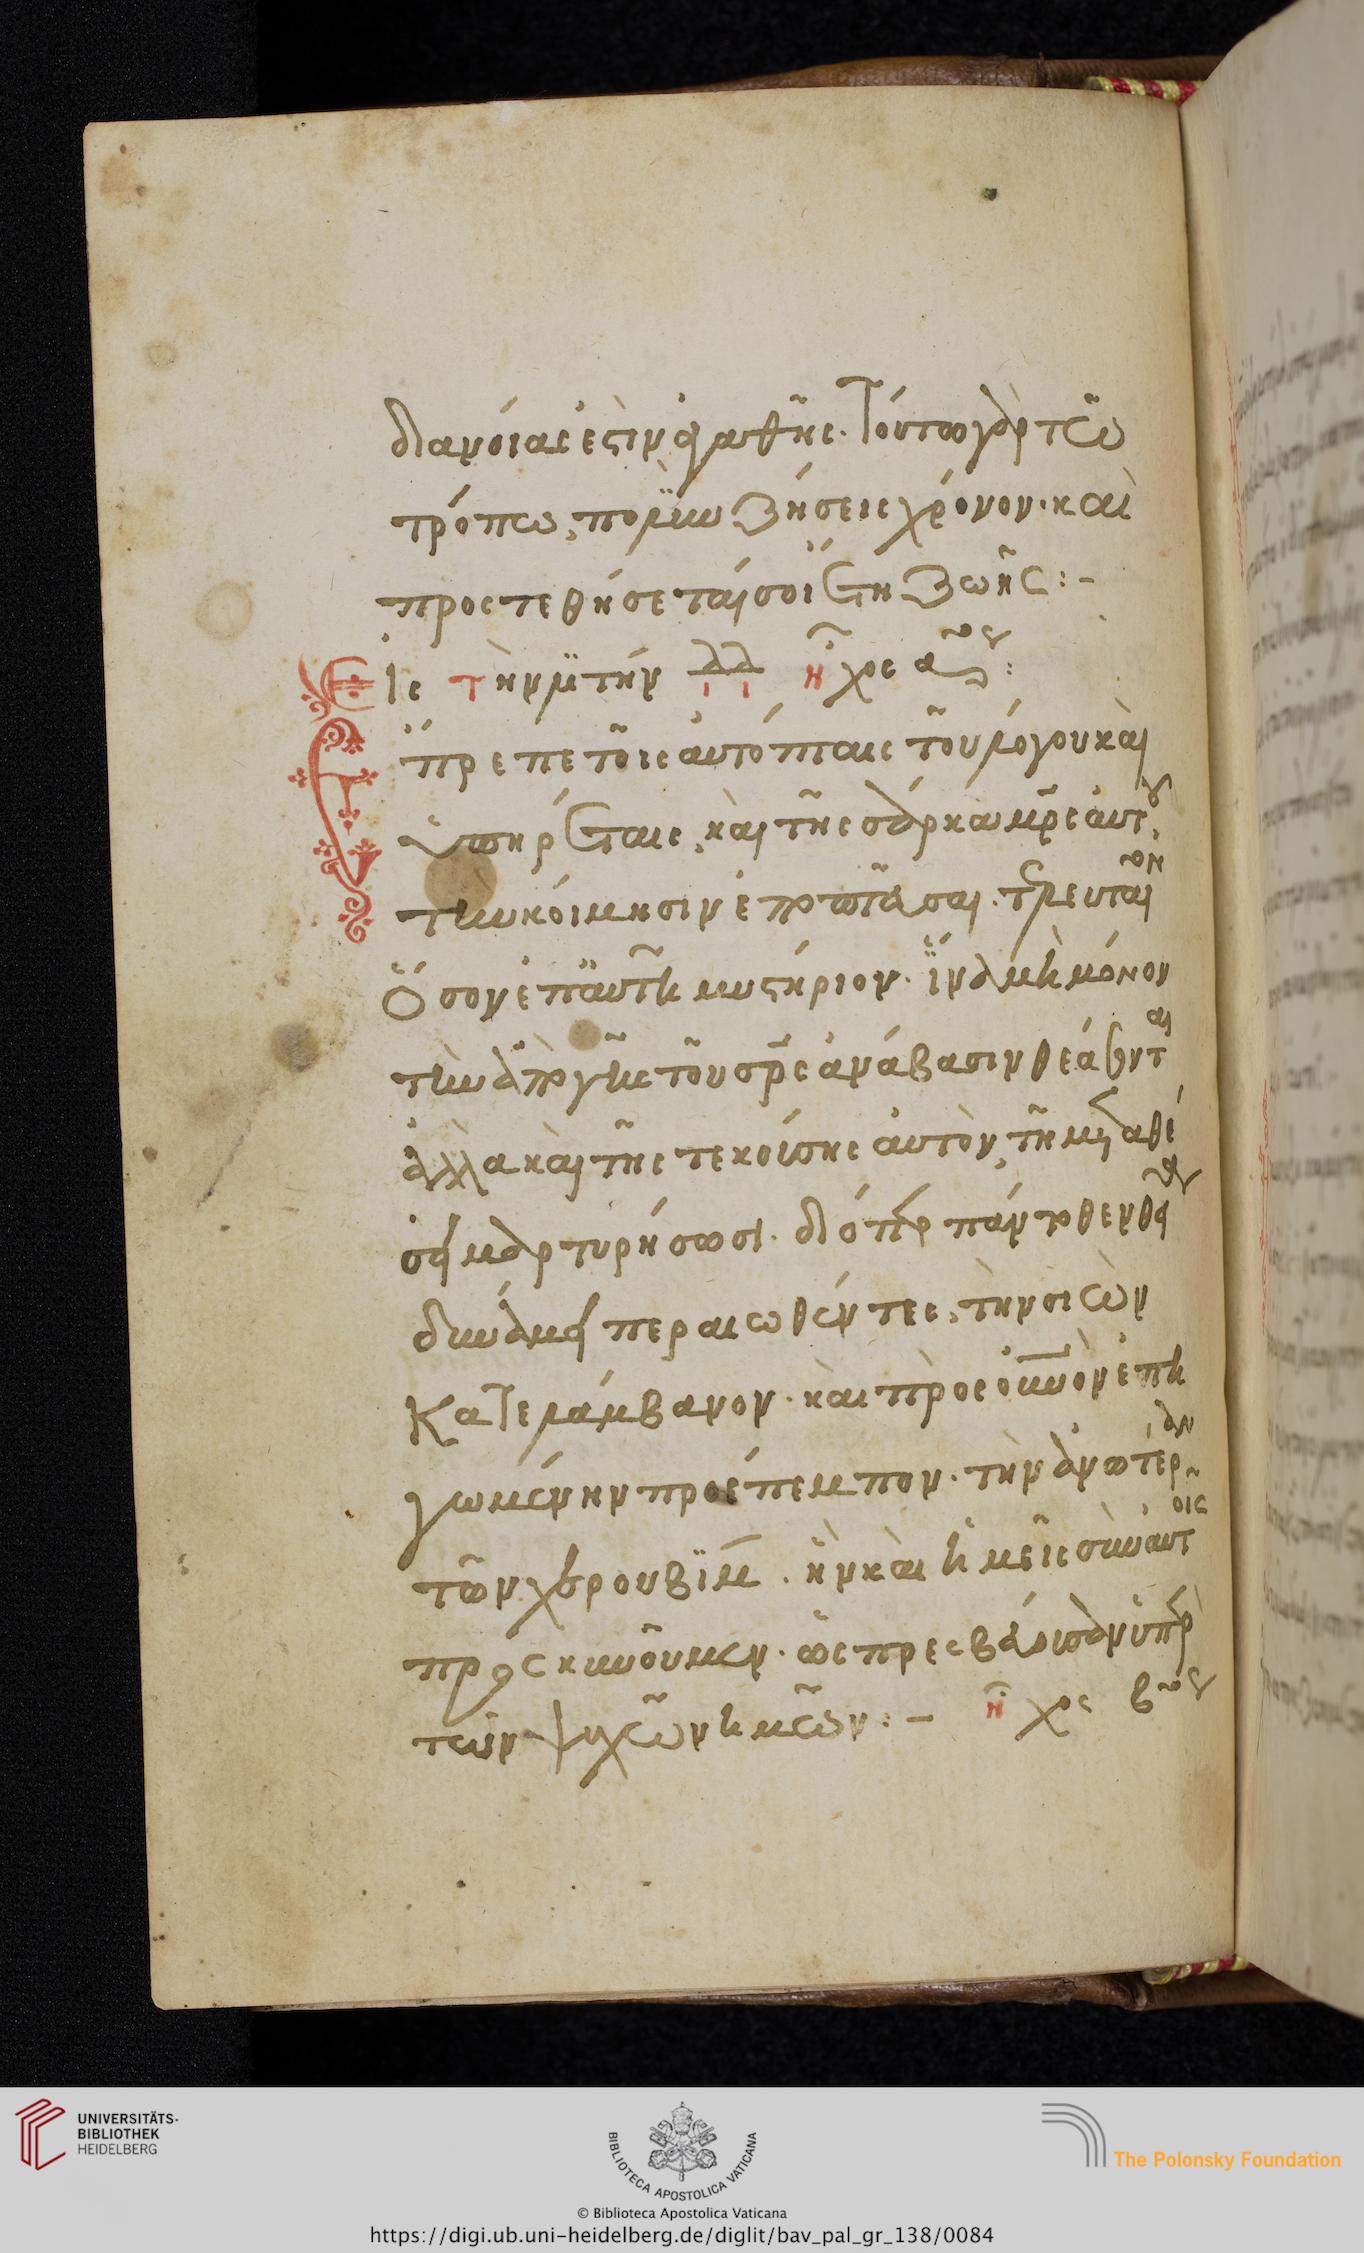 διανοίας ἐστὶν ἀγαθῆς. Τούτω γὰρ τῶ
τρόπω, πολὺν ζήσεις χρόνον. καὶ
προστεθήσεταί σοι ἔτη ζωῆς:-
Εἰς τὴν μ τὴν ἦχος α:
Ἔπρεπε τοῖς αὐτόπταις τοῦ λόγου καὶ
ὑπηρέταις, καὶ τῆς σάρκα μρς αὐτοῦ,
τὴν κοίμησιν ἐποπτεῦσαι. τελευταῖον
ἐπ' αὐτῆ μυστήριον. ἵνα μὴ μόνον
τὴν ἀπὸ γῆς τοῦ σρς ἀνάβασιν θεάσωνται
ἀλλὰ καὶ τῆς τεκούσης αὐτὸν, τῆ μεταθέ
σει μαρτυρήσωσι. διόπερ πάντοθεν θεία
δυνάμει περαιωθέντες, τὴν σιὼν
κατελάμβανον. καὶ πρὸς οὐνὸν ἐπει
γομένην προέπεμπον. τὴν ἀνωτέραν
τῶν χερουβὶμ. ἣν καὶ ἡμεῖς σὺν αὐτοῖς
προσκυνοῦμεν. ὡς πρεσβεύουσαν ὑπὲρ
τῶν ψυχῶν ἡμῶν:- ἦχος β
UNIVERSITÄTS-
BIBLIOTHEK
HEIDELBERG
BIBLIOTECA APOSTOLICA VATICANA
The Polonsky Foundation
© Biblioteca Apostolica Vaticana
https://digi.ub.uni-heidelberg.de/diglit/bav_pal_gr_138/0084